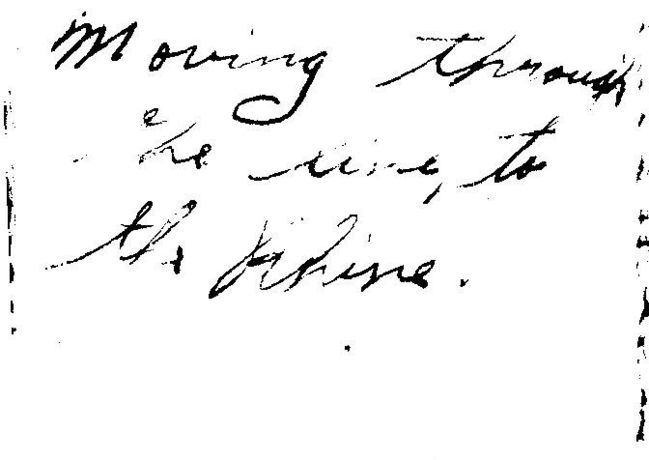 Moving through
the line, to
the Rhine.